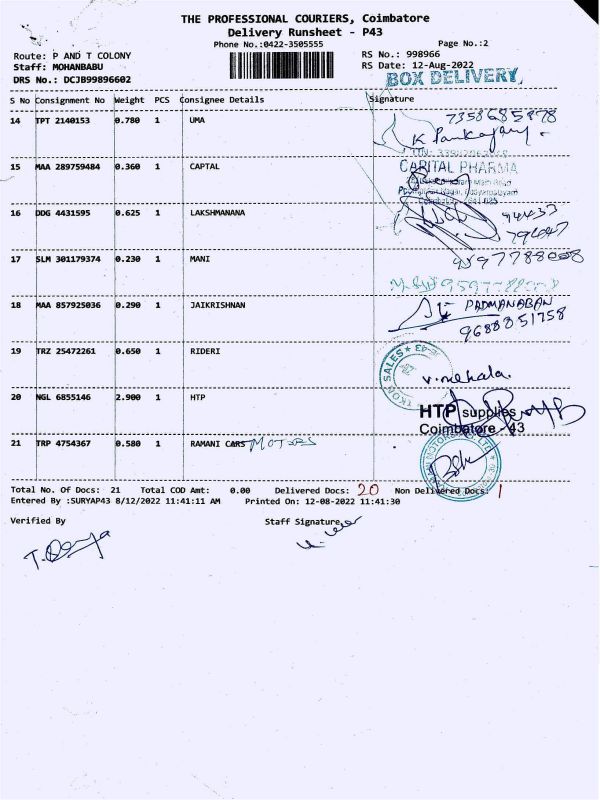 THE PROFESSIONAL COURIERS, Coimbatore
Delivery Runsheet - P43
Phone No.:0422-3505555
Page No.:2
Route: P AND T COLONY
RS No.: 998966
Staff: MOHANBABU
RS Date: 12-Aug-2022
DRS No.: DCJB99896602
BOX DELIVERY
S No Consignment No Weight PCS Consignee Details Signature
14 TPT 2140153 0.780 1 UMA
7358685878
K
15 MAA 289759484 0.360 1 CAPTAL
CAPITAL PHARMA
16 DDG 4431595 0.625 1 LAKSHMANANA
94437
794647
17 SLM 301179374 0.230 1 MANI
9597788008
18 MAA 857925036 0.290 1 JAIKRISHNAN
PADMANABAN
9688851758
19 TRZ 25472261 0.650 1 RIDERI
SALES
v. mekala.
20 NGL 6855146 2.900 1 HTP
HTP supplies
Coimbatore - 43
21 TRP 4754367 0.580 1 RAMANI CARS MOTORS
Total No. Of Docs: 21 Total COD Amt: 0.00 Delivered Docs: 20 Non Delivered Docs: 1
Entered By :SURYAP43 8/12/2022 11:41:11 AM Printed On: 12-08-2022 11:41:30
Verified By Staff Signature